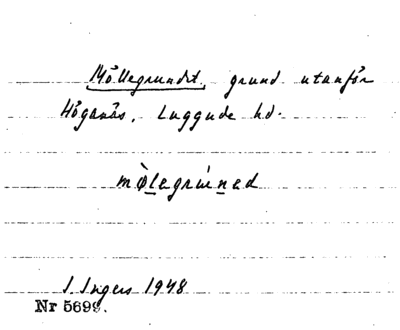 Möllegrundet, grund utanför
Höganäs, Luggude hd.
mø̀legrúned
I. Ingers 1948
Nr 5699.